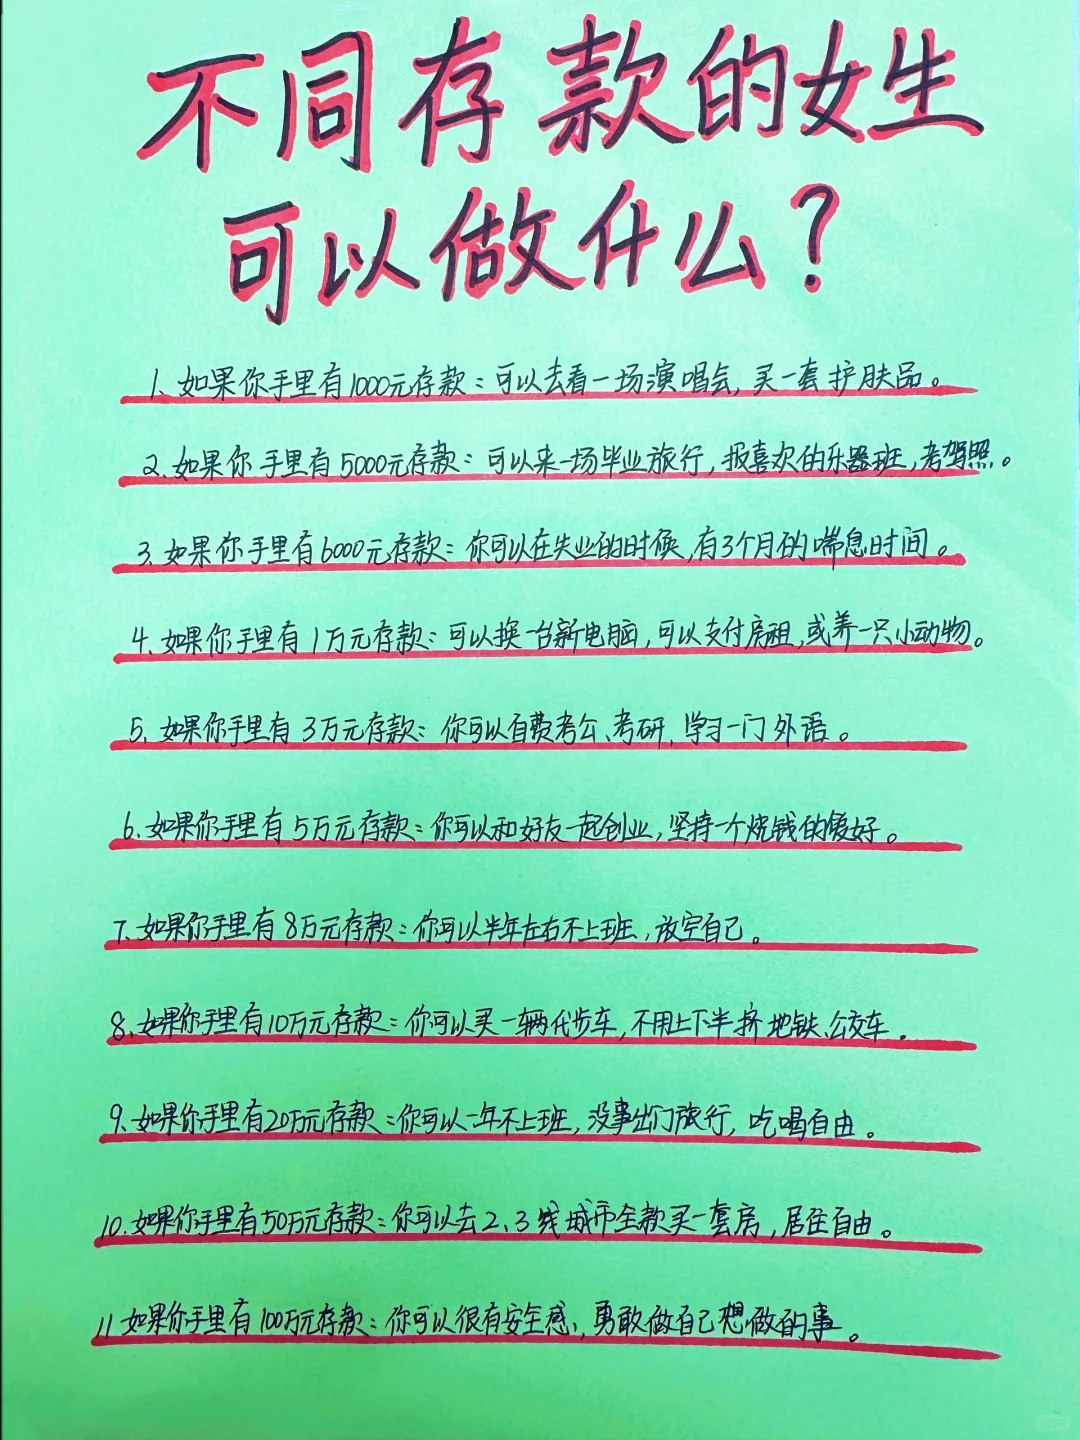 不同存款的女生
可以做什么?
1、如果你手里有1000元存款：可以去看一场演唱会，买一套护肤品。
2、如果你手里有5000元存款：可以来一场毕业旅行，报喜欢的乐器班，考驾照。
3、如果你手里有6000元存款：你可以在失业的时候，有3个月的喘息时间。
4、如果你手里有1万元存款：可以换一台新电脑，可以支付房租，或养一只小动物。
5、如果你手里有3万元存款：你可以自费考公、考研、学习一门外语。
6、如果你手里有5万元存款：你可以和好友一起创业，坚持一个烧钱的爱好。
7、如果你手里有8万元存款：你可以半年左右不上班，放空自己。
8、如果你手里有10万元存款：你可以买一辆代步车，不用上下半挤地铁、公交车。
9、如果你手里有20万元存款：你可以一年不上班，没事出门旅行，吃喝自由。
10、如果你手里有50万元存款：你可以去2、3线城市全款买一套房，居住自由。
11如果你手里有100万元存款：你可以很有安全感，勇敢做自己想做的事。